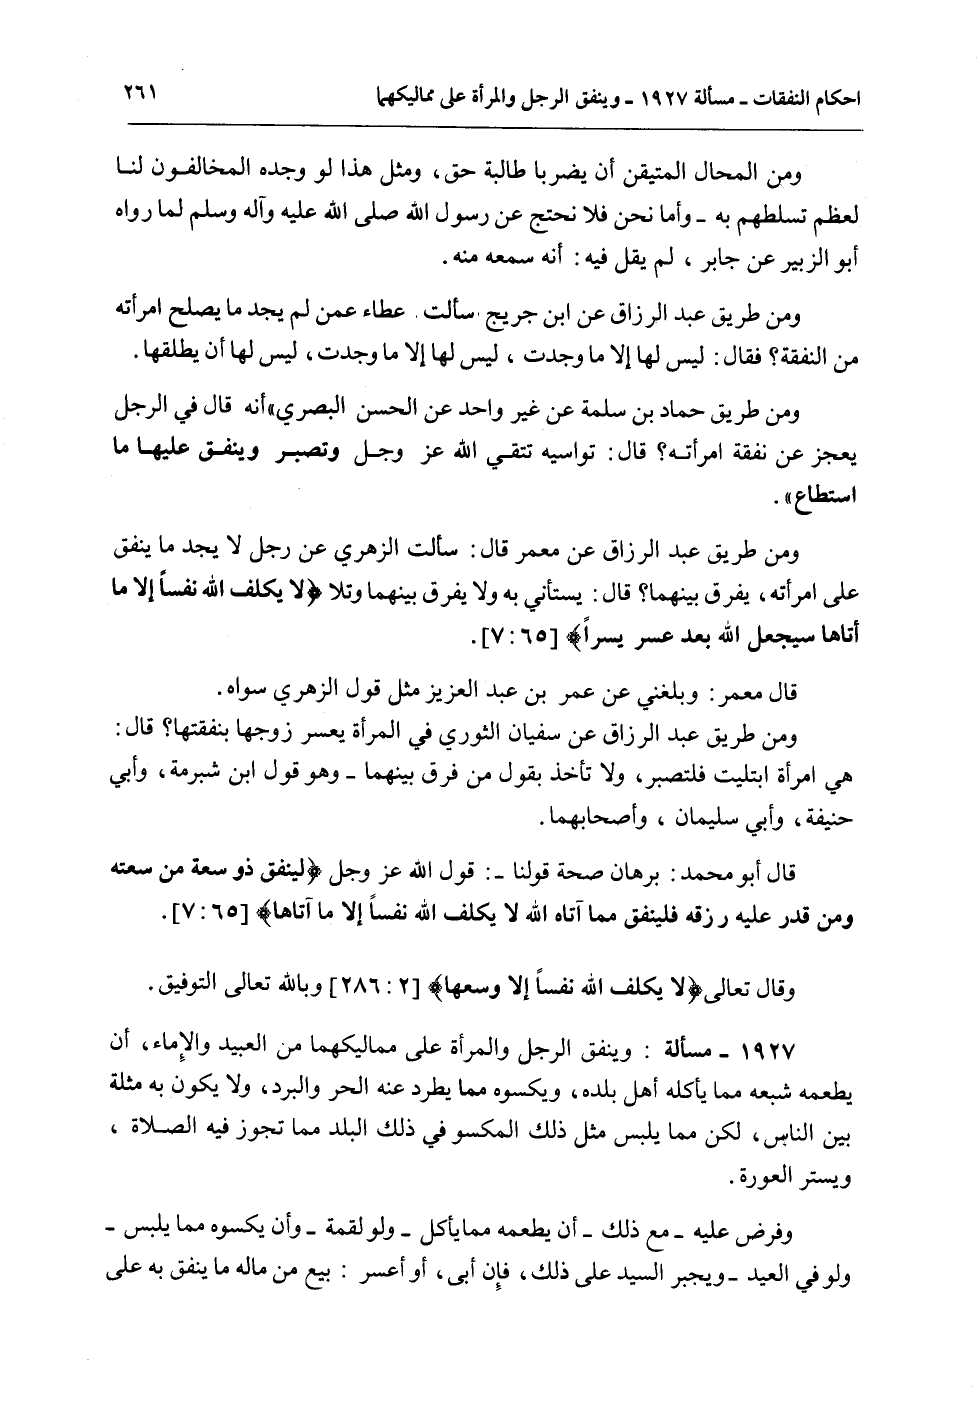 احكام النفقات ـ مسألة ١٩٢٧ ـ وينفق الرجل والمرأة على مماليكهما ٢٦١
ومن المحال المتيقن أن يضربا طالبة حق، ومثل هذا لو وجده المخالفون لنا
لعظم تسلطهم به ـ وأما نحن فلا نحتج عن رسول الله صلى الله عليه وآله وسلم لما رواه
أبو الزبير عن جابر ، لم يقل فيه: أنه سمعه منه.
ومن طريق عبد الرزاق عن ابن جريج سألت عطاء عمن لم يجد ما يصلح امرأته
من النفقة؟ فقال: ليس لها إلا ما وجدت ، ليس لها إلا ما وجدت، ليس لها أن يطلقها.
ومن طريق حماد بن سلمة عن غير واحد عن الحسن البصري»أنه قال في الرجل
يعجز عن نفقة امرأته؟ قال: تواسيه تتقي الله عز وجل وتصبر وينفق عليها ما
استطاع».
ومن طريق عبد الرزاق عن معمر قال: سألت الزهري عن رجل لا يجد ما ينفق
على امرأته، يفرق بينهما؟ قال: يستأني به ولا يفرق بينهما وتلا ﴿لا يكلف الله نفساً إلا ما
أتاها سيجعل الله بعد عسر يسراً﴾ [٦٥ :٧].
قال معمر: وبلغني عن عمر بن عبد العزيز مثل قول الزهري سواه.
ومن طريق عبد الرزاق عن سفيان الثوري في المرأة يعسر زوجها بنفقتها؟ قال:
هي امرأة ابتليت فلتصبر، ولا تأخذ بقول من فرق بينهما ـ وهو قول ابن شبرمة، وأبي
حنيفة، وأبي سليمان ، وأصحابهما.
قال أبو محمد: برهان صحة قولنا ـ: قول الله عز وجل ﴿لينفق ذو سعة من سعته
ومن قدر عليه رزقه فلينفق مما آتاه الله لا يكلف الله نفساً إلا ما آتاها﴾ [٦٥ :٧].
وقال تعالى﴿لا يكلف الله نفساً إلا وسعها﴾ [٢ : ٢٨٦] وبالله تعالى التوفيق.
١٩٢٧ ـ مسألة : وينفق الرجل والمرأة على مماليكهما من العبيد والإماء، أن
يطعمه شبعه مما يأكله أهل بلده، ويكسوه مما يطرد عنه الحر والبرد، ولا يكون به مثلة
بين الناس، لكن مما يلبس مثل ذلك المكسو في ذلك البلد مما تجوز فيه الصلاة ،
ويستر العورة.
وفرض عليه ـ مع ذلك ـ أن يطعمه مما يأكل ـ ولو لقمة ـ وأن يكسوه مما يلبس ـ
ولو في العيد ـ ويجبر السيد على ذلك، فإن أبى، أو أعسر : بيع من ماله ما ينفق به على